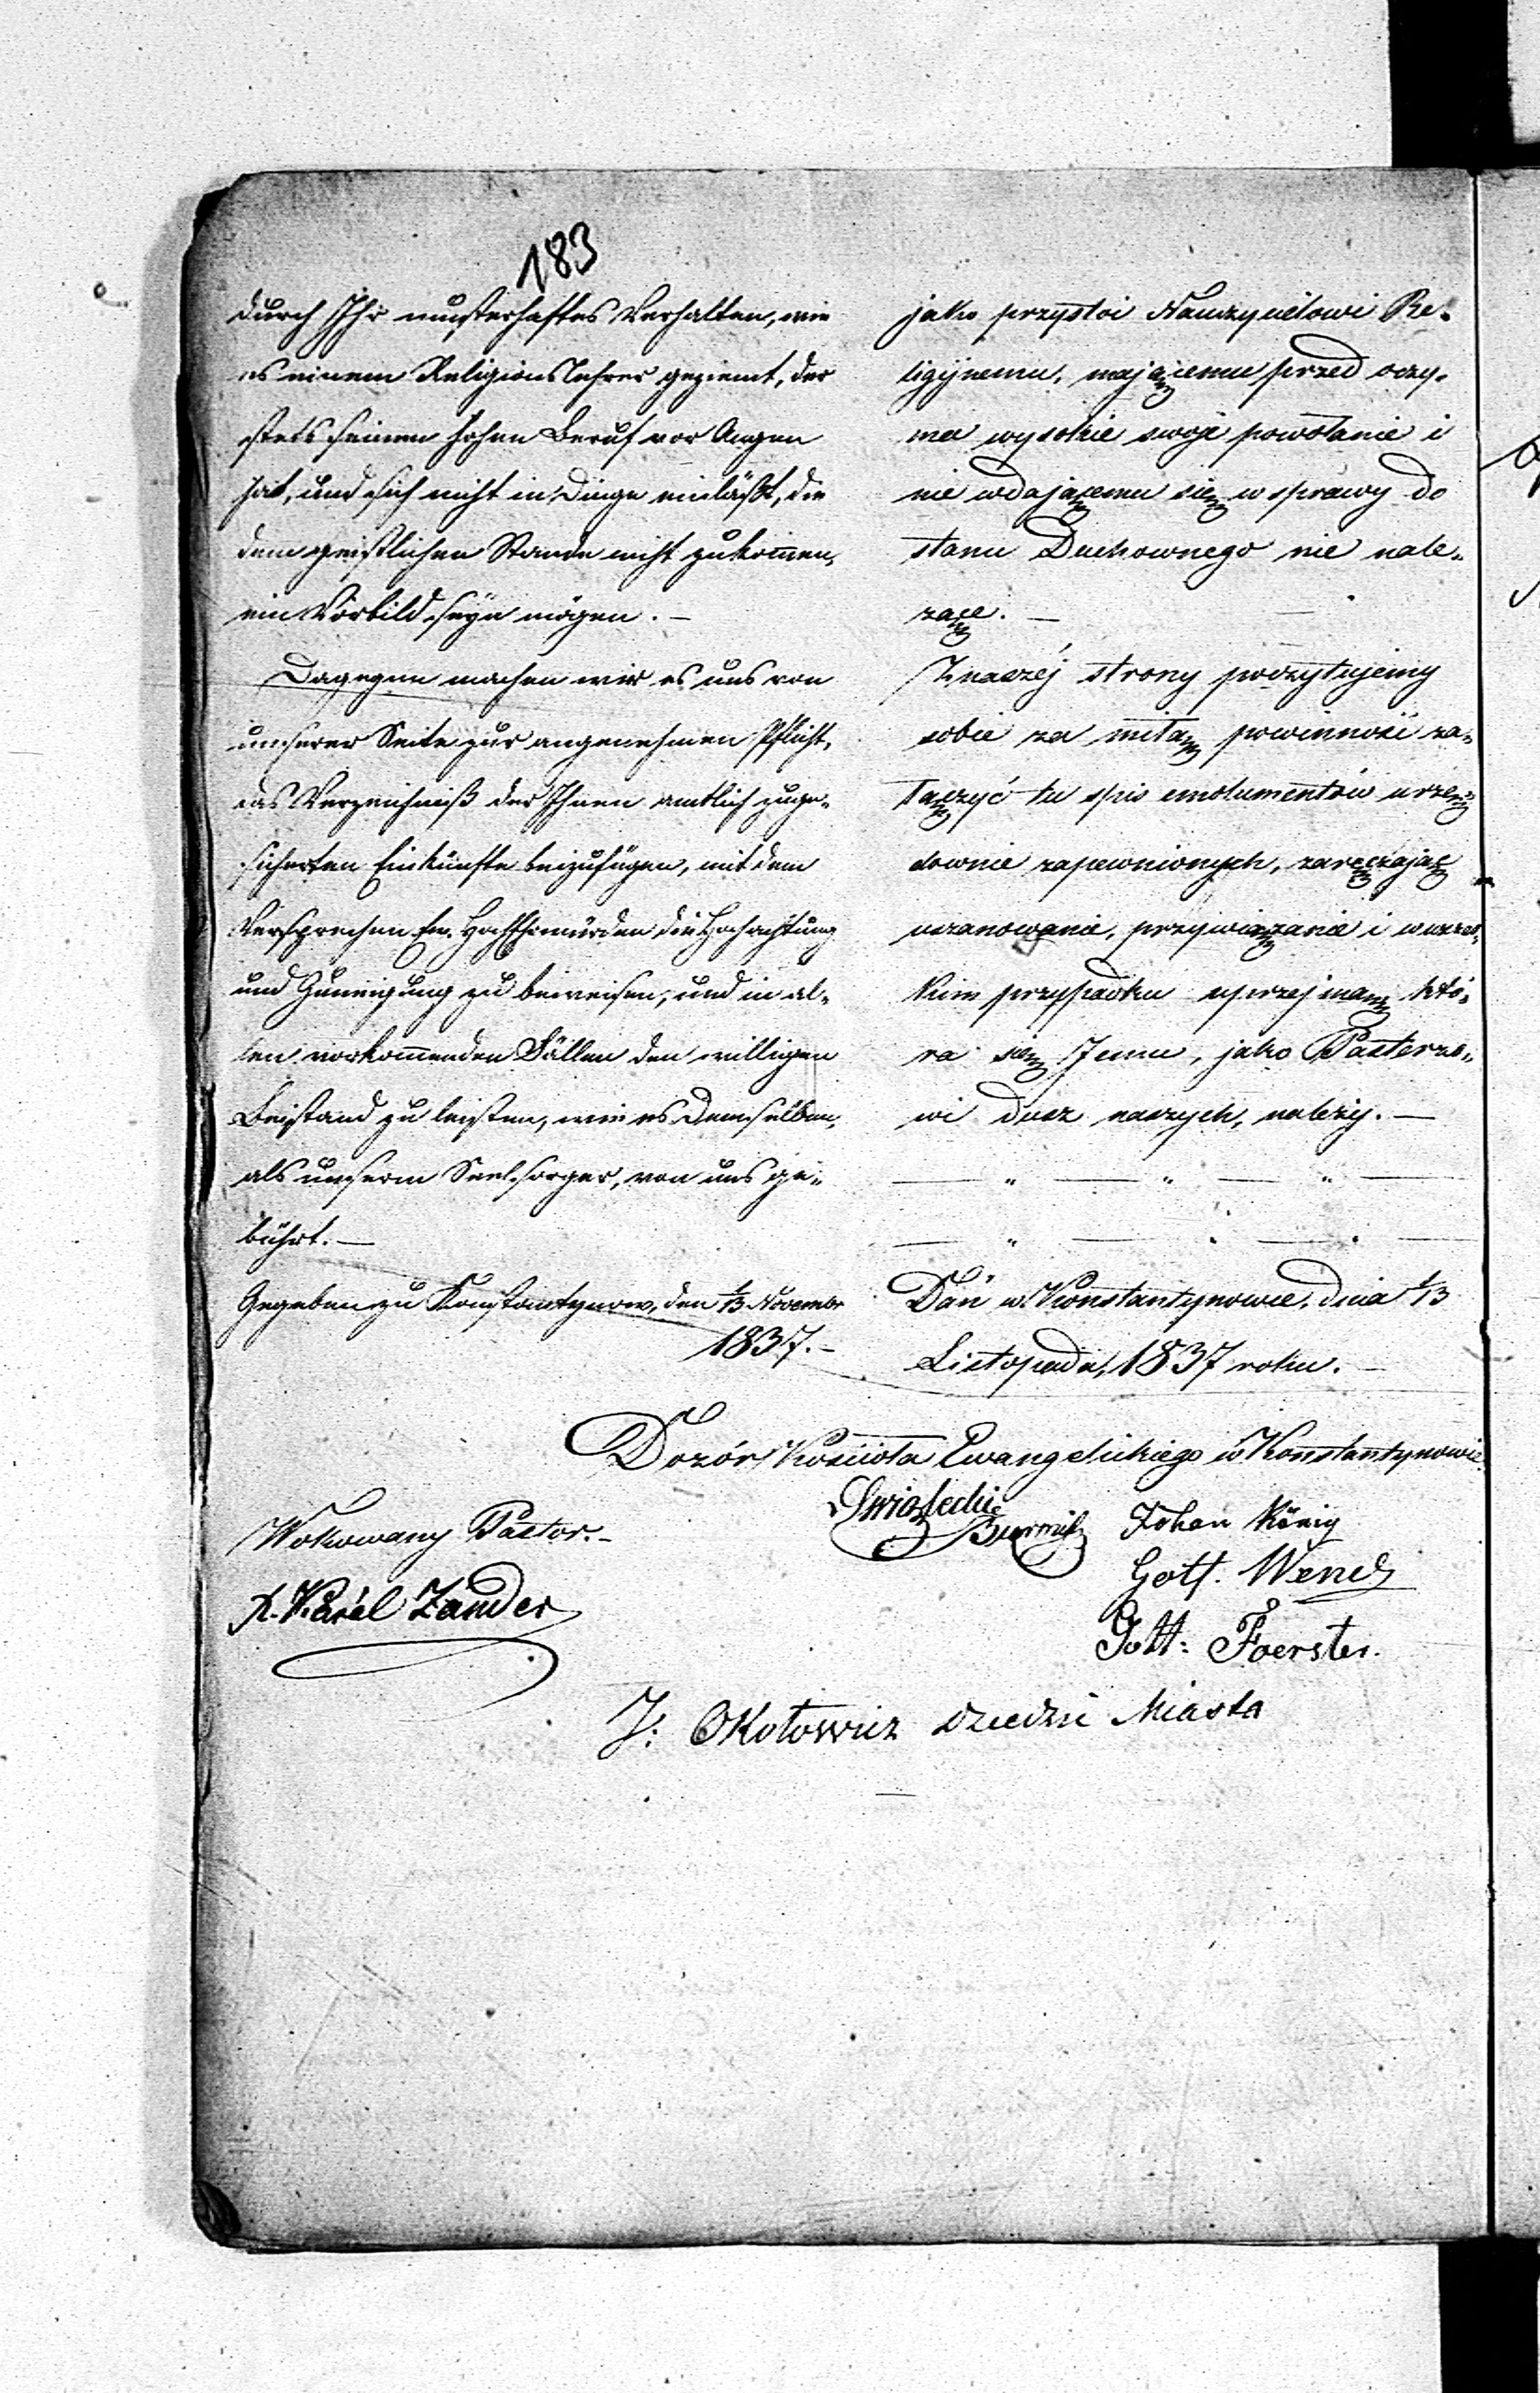 183
durch Ihr musterhaftes Verhalten, wie
es einem Religionslehrer geziemt, der
stets seinen hohen Beruf vor Augen
hat, und sich nicht in Dinge einläßt, die
dem geistlichen Stande nicht zukom̄en,
ein Vorbild seyn mögen. —
Dagegen machen wir es uns von
unserer Seite zur angenehmen Pflicht,
das Verzeichniß der Ihnen amtlich zuge-
sicherten Einkünfte beizufügen, mit dem
Versprechen Ew. HochEhrwürden die Hochachtung
und Zuneigung zu beweisen, und in al-
len vorkom̄enden Fällen den willigen
Beistand zu leisten, wie es Demselben,
als unserm Seelsorger, von uns ge-
bührt. —
Gegeben zu Konstantynow, den 1/13 November
1837. —
jako przystoi Nauczycielowi Re-
ligijnemu, mającemu przed oczy-
ma wysokie swoje powołanie i
nie wdającemu się w sprawy do
stanu Duchownego nie nale-
zące. —
Z naszéj strony poczytujemy
sobie za miłą powinność za-
łączyć tu spis emolumentów urzę-
downie zapewnionych, zaręczając
uszanowanie, przywiązanie i w wszel-
kim przypadku uprzejmą któ-
ra się Jemu, jako Pasterzo-
wi dusz naszych, należy. —
— " — " — " —
— " — " — " —
Dan w Konstantynowie, dnia 1/13
Listopada, 1837 roku. —
Dozór Kościoła Ewangelickiego w Konstantynowie
Świątecki Burmil
Johan König
Wokowany Pastor. —
Gott. Wende
X. Karól Zander
Gott: Foerster.
J: Okołowicz Dziedzic Miasta